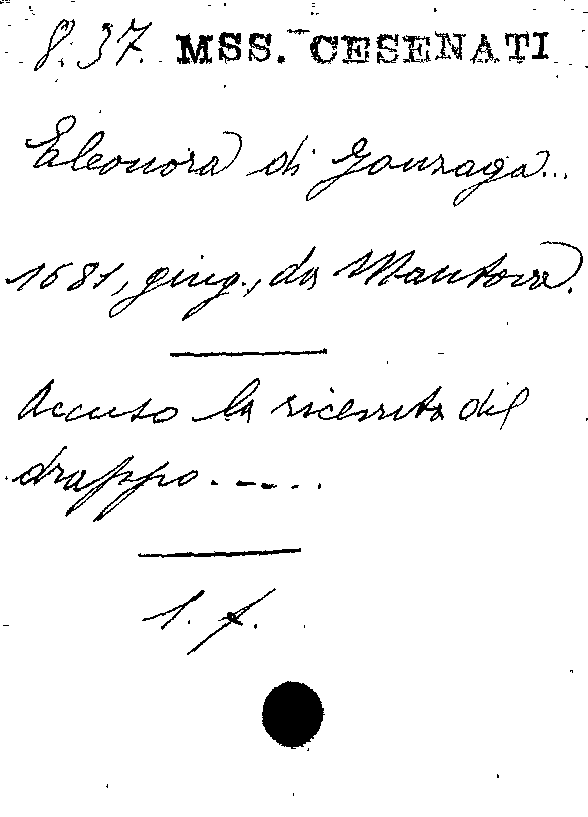 8.37. MSS. CESENATI
Eleonora di Gonzaga...
1681, giug., da Mantova.
Accuso la ricevuta del
drappo.....
1. f.